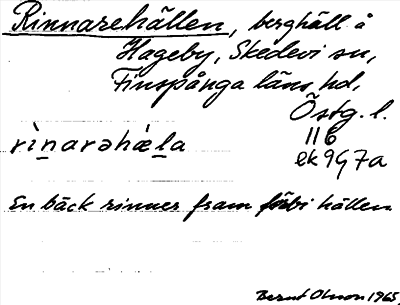 Rinnarehällen, berghäll å
Hageby, Skedevi sn,
Finspånga läns hd,
Östg. l.
116
rìn̲arəhäl̲a
ek 9G7a
En bäck rinner fram förbi hällen
Bernt Olsson 1965.